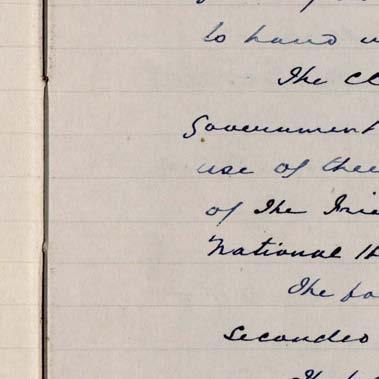 to hand
The Cl
Government
use of thei
of The Frie
National H
The fo
Seconded